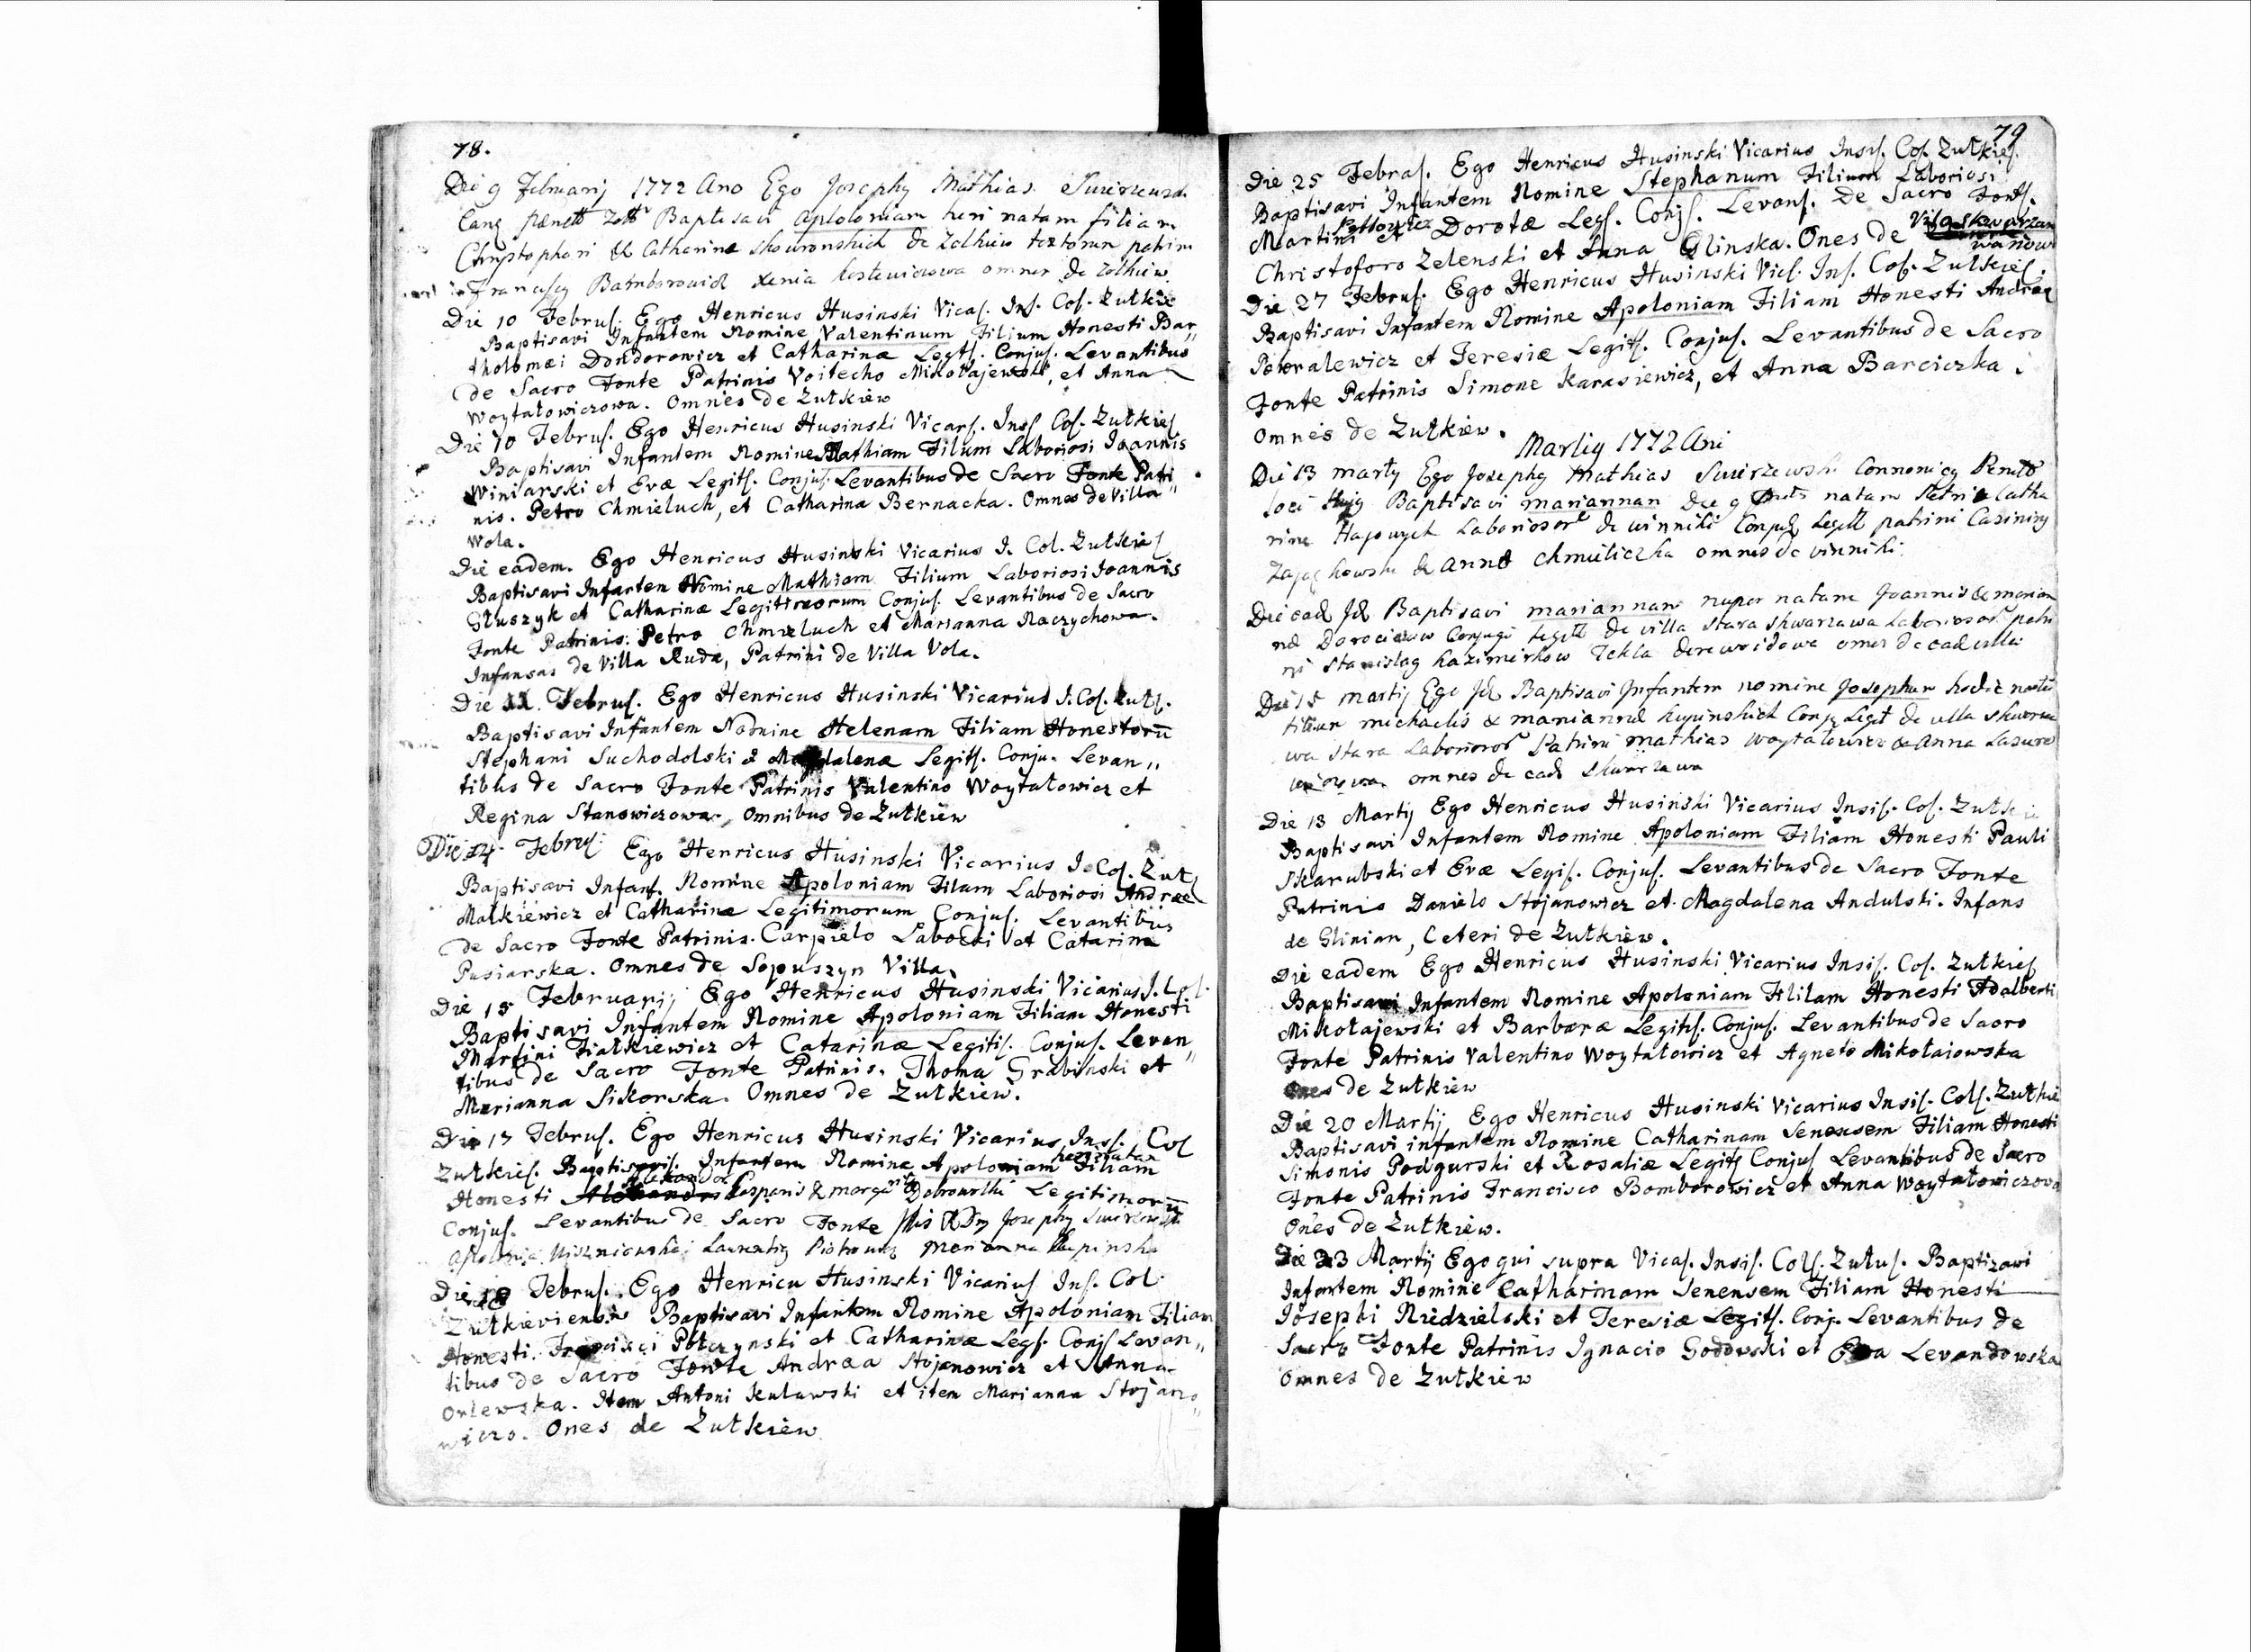 78.
Die 9 Februarij 1772 Ano Ego Josephg Mathias Swirzewski
Cang Baptisavi Apoloniam heri natam filiam
Christophori & Catharina Skowronskich de Zolkiew textorum patrini
Franciscg Bamborowicz Xenia omnes de Zolkiew
Die 10 Februſ. Ego Henricus Husinski Vicaſ. Inſ. Coſ. Zułkie
Baptisavi Infantem Nomine Valentinum Filium Honesti Bar„
tholomæi Dondorowicz et Catharinæ Legtſ. Conjuſ. Levantibus
de Sacro Fonte Patrinis Voitecho Mikołajewski, et Anna
Woytałowiczowa. Omnes de Zułkiew
Die 10 Februſ. Ego Henricus Husinski Vicarſ. Insſ Coſ. Zułkieſ
Baptisavi Infantem Nomine Mathiam Filum Laboriosi Joannis
Winiarski et Evæ Legitſ. Conjuſ. Levantibus de Sacro Fonte Patri„
nis. Petro Chmieluch, et Catharina Bernacka. Omnes de Villa
Wola.
Die eadem. Ego Henricus Husinski Vicarius I. Col. Zułkieſ
Baptisavi Infantem Nomine Mathiam Filium Laboriosi Joannis
Głuszyk et Catharinæ Legitimorum Conjuſ. Levantibus de Sacro
Fonte Patrinis. Petro Chmieluch et Marianna Raczychowa.
Infansas de Villa Ruda, Patrini de Villa Vola.
Die 11. Februſ. Ego Henricus Husinski Vicarius I. Coſ. Zułſ.
Baptisavi Infantem Nomine Helenam Filiam Honestorū
Stephani Suchodolski & Magdalenæ Legitſ. Conju. Levan„
tibus de Sacro Fonte Patrinis Valentino Woytałowicz et
Regina Stanowiczowa, Omnibus de Zułkiew
Die 14. Februſ. Ego Henricus Husinski Vicarius I. Coſ. Zułſ
Baptisavi Infanſ. Nomine Apoloniam Filam Laboriosi Andræe
Małkiewicz et Catharinæ Legitimorum Conjuſ. Levantibus
de Sacro Fonte Patrinis. Carpielo Labocki et Catarina
Pasiarska. Omnes de Sopuszyn Villa.
Die 15 Februarij Ego Henricus Husinski Vicarius I. Col.
Baptisavi Infantem Nomine Apoloniam Filiam Honesti
Martini Fiałkiewicz et Catarinæ Legitiſ. Conjuſ. Levan„
tibus de Sacro Fonte Patrinis. Thoma Grabinski et
Marianna Sikorska. Omnes de Zułkiew.
Die 17 Februſ. Ego Henricus Husinski Vicarius Insſ. Col
Zułkieſ. Baptisavi Infantem Nomine Apoloniam heri natam Filiam
Honesti Gasparis & Dobrowolski Legitimorū
Conjuſ. Levantibus de Sacro Fonte Josephg
Apolonia Laurentig Piotrowicz Marianna Kupinska
Die 18 Februſ. Ego Henricu Husinski Vicariuſ Inſ. Col.
Zułkieviensis Baptisavi Infantem Nomine Apoloniam Filiam
Honesti. Francisci Połczynski et Catharinæ Legſ. Conjſ Levan„
tibus de Sacro Fonte Andræa Stojanowicz et Anna
Orlewska. Item Antoni Kulawski et item Marianna Stojano„
wiczo. Ones de Zułkiew
79
Die 25 Februſ. Ego Henricus Husinski Vicarius Insiſ. Coſ. Zułkieſ.
Baptisavi Infantem Nomine Stephanum Filium Laboriosi
Martini et Dorotæ Legſ. Conjſ. Levanſ. de Sacro Fontſ.
Christoforo Zelenski et Anna Glinska. Ones de Vila
Die 27 Februſ. Ego Henricus Husinski Vicſ. Inſ. Coſ. Zułkieſ.
Baptisavi Infantem Nomine Apoloniam Filiam Honesti Andræe
et Teresiæ Legitſ. Conjuſ. Levantibus de Sacro
Fonte Patrinis Simone Karasiewicz, et Anna Barciczka.
Omnes de Zułkiew.
Martig 1772 Ani
Die 13 marty Ego Josephg Mathias Swirzewski Connonicg
loci Baptisavi mariannan die 9 natam Petri & Catha
rine Laboriosor de winniki Conjug Legitt patrini Casimirg
& Anna Chmieliczka omnes de vinniki
Die ead Baptisavi mariannam nuper natam Joannis & marian
næ Conjugū Legitt de villa Stara Skwarzawa Laboriosor patri
ni Stanislag Kazimirkow Tekla omnes de ead villa
Die 15 Martij Ego Baptisavi Infantem nomine Josephum hodie natū
filium michaelis & mariannæ Kupinskich Conjg Legit de villa Skwarza
wa Stara Laborioror Patrini Mathias Woytałowicz & Anna
omnes de ead Skwarzawa
Die 18 Martij Ego Henricus Husinski Vicarius Insiſ. Coſ. Zułkie
Baptisavi Infantem Nomine Apoloniam Filiam Honesti Pauli
Skarubski et Evæ Legiſ. Conjuſ. Levantibus de Sacro Fonte
Patrinis Danielo Stojanowicz et Magdalena Andulski. Infans
de Glinian, Ceteri de Zułkiew.
Die eadem Ego Henricus Husinski Vicarius Insiſ. Coſ. Zułkieſ
Baptisavi Infantem Nomine Apoloniam Fililam Honesti Adalberti
Mikołajewski et Barbaræ Legitſ. Conjuſ. Levantibus de Sacro
Fonte Patrinis Valentino Woytałowicz et Agneto Mikołaiowska
Ones de Zułkiew
Die 20 Martij Ego Henricus Husinski Vicarius Insiſ. Colſ. Zułkie
Baptisavi infantem Nomine Catharinam Senensem Filiam Honesti
Simonis Podgurski et Rosaliæ Legitſ Conjuſ Levantibus de Sacro
Fonte Patrinis Francisco Bomborowicz et Anna Woytałowiczowa
Ones de Zułkiew.
Die 23 Martij Ego qui supra Vicaſ. Insiſ. Colſ. Zułuſ. Baptizavi
Infantem Nomine Catharinam Senensem Filiam Honesti
Josephi Niedzielski et Teresiæ Legitſ. Conj. Levantibus de
Sacro Fonte Patrinis Ignacio Godowski et Levandowska
Omnes de Zułkiew